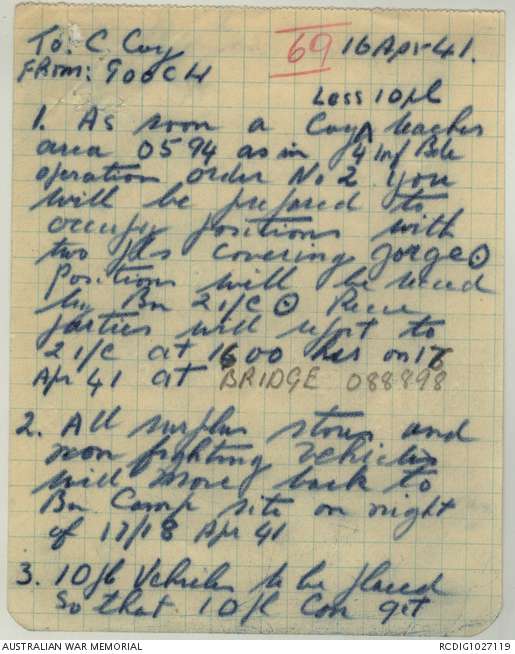 To: C. Coy
69 16 Apr 41.
FROM: GOOCH
Less 10 pl
1. As soon a Coy ∧ reaches
area 0594 as in 4 Inf Bde
operation order No 2 you
will be prepared to
occupy positions with
two pls covering gorge ⊙
Positions will be recced
by Bn 2 i/c ⊙ Recce
parties will report to
2 i/c at 1600 hrs on 16
Apr 41 at BRIDGE 088898
2. All surplus stores and
non fighting vehicles
will move back to
Bn Camp site on night
of 17/18 Apr 41
3. 10 pl Vehicles to be placed
so that 10 pl can get
AUSTRALIAN WAR MEMORIAL
RCDIG1027119